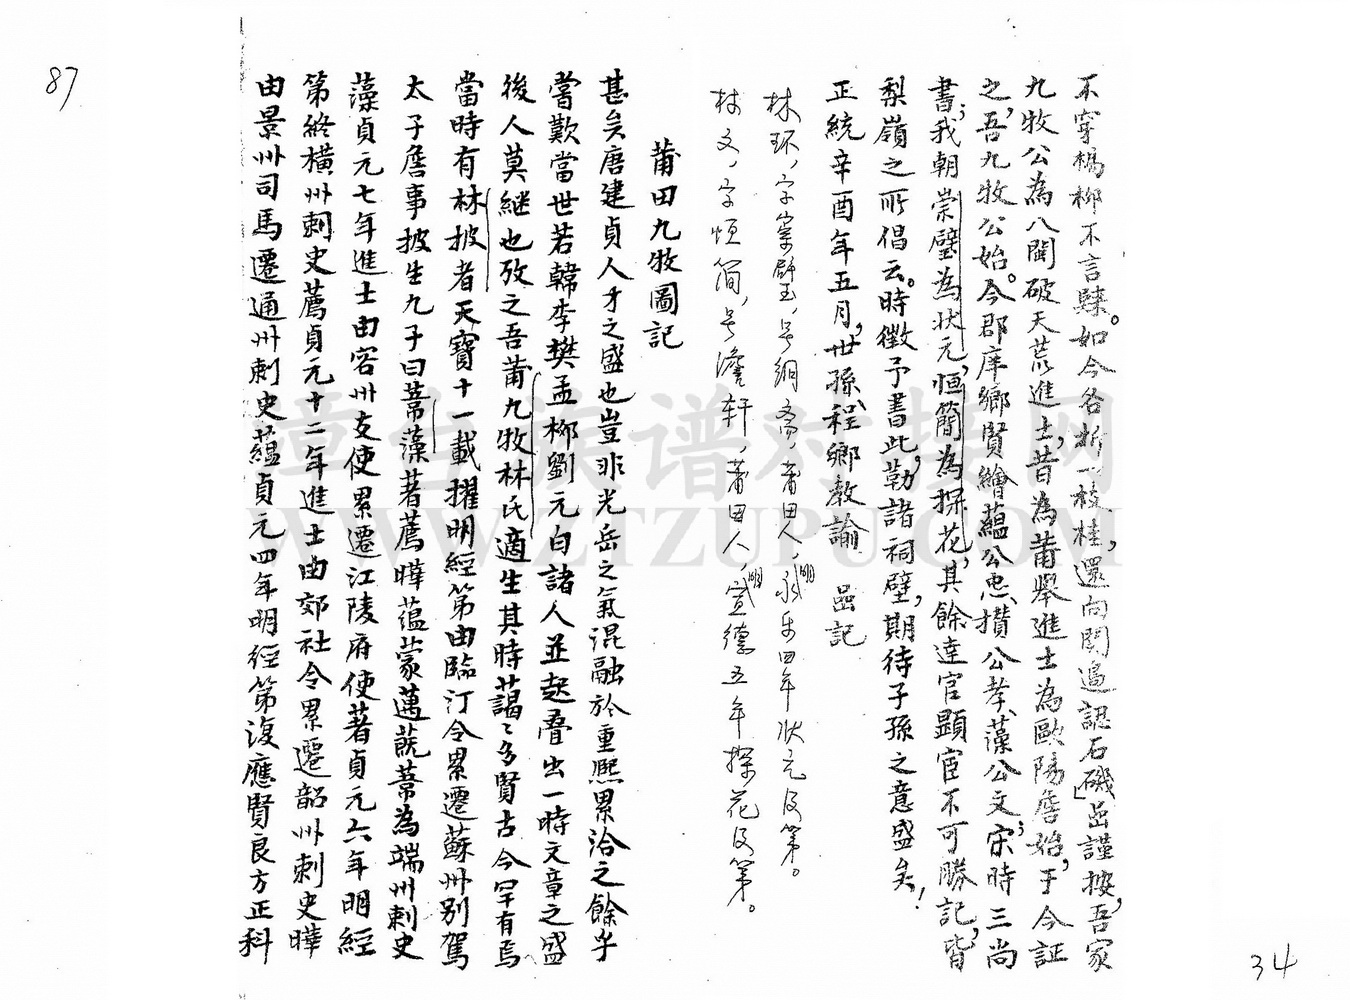 87
不穿楊柳不言驥。如今各折一枝桂，還向閩邊認石磯」嵒謹按，吾家
九牧公為八閩破天荒進士，昔為莆舉進士為歐陽詹始，于今証
之，吾九牧公始。今郡庠鄉賢繪蘊公忠，攢公孝，藻公文；宋時三尚
書；我朝崇璧為狀元，恒簡為探花，其餘達官顯宦不可勝記，皆
梨嶺之所倡云。時徵予書此，勒諸祠壁，期待子孫之意盛矣！
正統辛酉年五月，世孫程鄉教諭 嵒記
林环，字崇璧，号絅斋，莆田人，明永乐四年状元及第。
林文，字恒简，号澹轩，莆田人，明宣德五年探花及第。
莆田九牧圖記
甚矣唐建貞人才之盛也豈非光岳之氣混融於重熙累洽之餘乎
嘗歎當世若韓李樊孟柳劉元白諸人並起疊出一時文章之盛
後人莫継也攷之吾莆九牧林氏適生其時藹〻多賢古今罕有焉
當時有林披者天寶十一載擢明經第由臨汀令累遷蘇州別駕
太子詹事披生九子曰葦藻著薦曄蕴蒙邁蔇葦為端州刺史
藻貞元七年進士由容州支使累遷江陵府使著貞元六年明經
第終橫州刺史薦貞元十二年進士由郊社令累遷韶州刺史曄
由景州司馬遷通州刺史蘊貞元四年明經第復應賢良方正科
34
漳台族谱对接网
WWW.ZTZUPU.COM